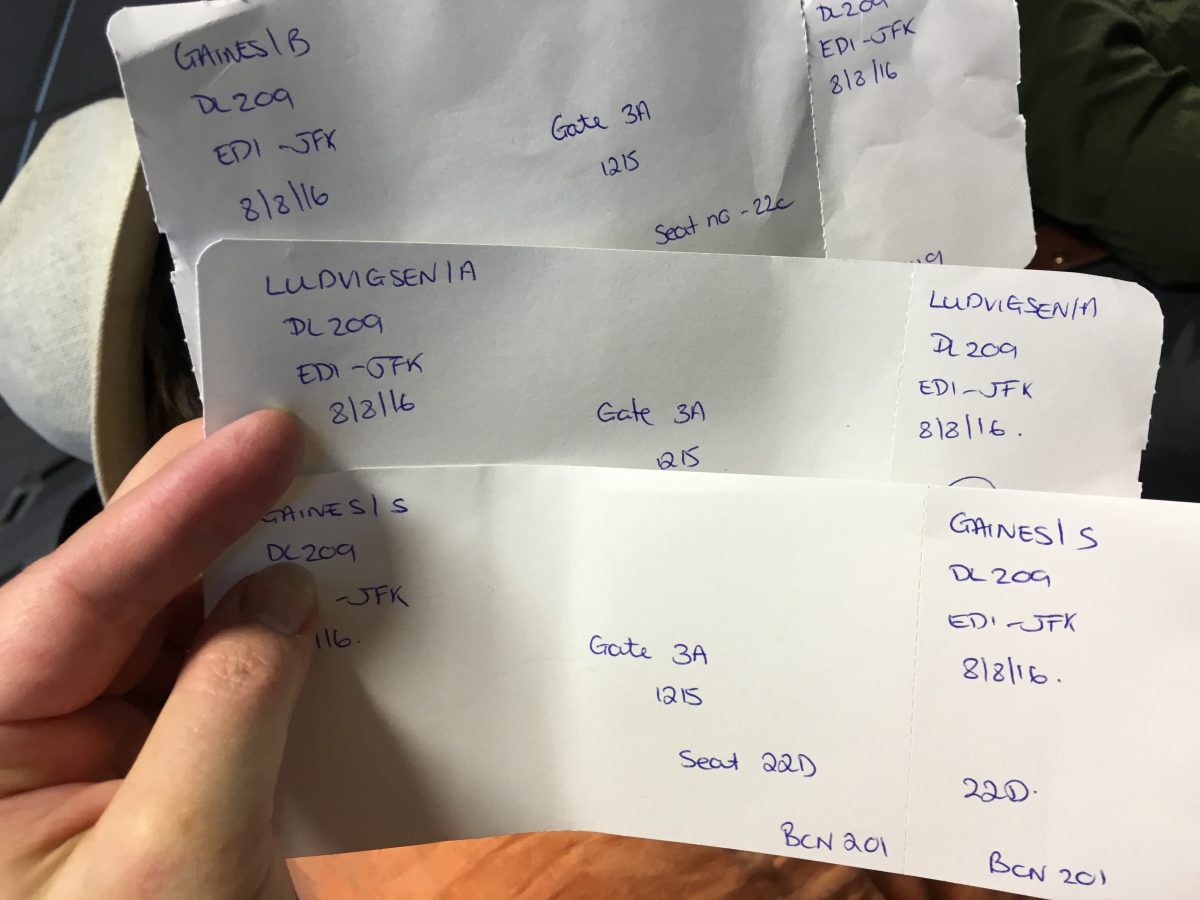 GAINES/B
DL209
EDI-JFK
8/8/16
Gate 3A
1215
Seat no - 22C
DL209
EDI-JFK
8/8/16
LUDVIGSEN/A
DL209
EDI-JFK
8/8/16
Gate 3A
1215
LUDVIGSEN/A
DL209
EDI-JFK
8/8/16.
GAINES/S
DL209
-JFK
/16.
Gate 3A
1215
Seat 22D
BCN 201
GAINES/S
DL209
EDI-JFK
8/8/16.
22D.
BCN 201